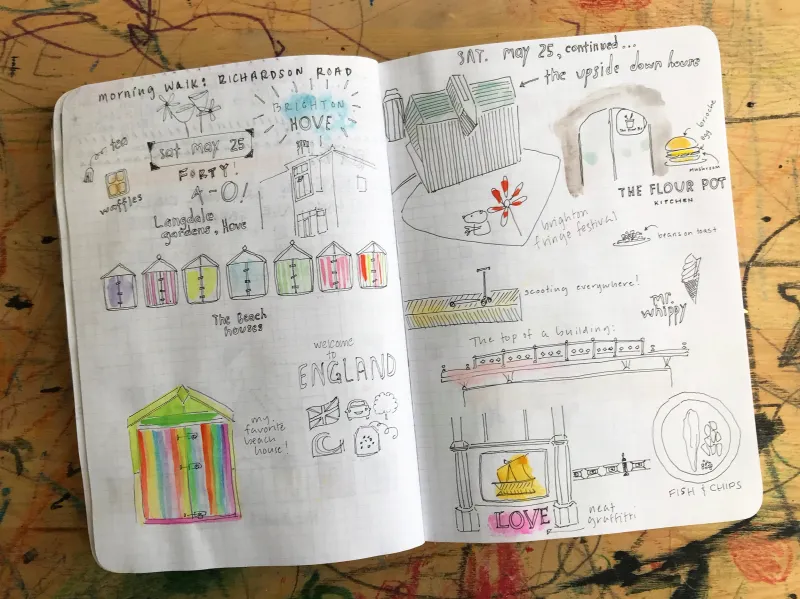 morning walk: RICHARDSON ROAD
BRIGHTON
HOVE
sat may 25
or tea
waffles
FORTY!
A-O!
Langdale
gardens, Hove
The Beach
houses
welcome
to
ENGLAND
my
favorite
beach
house!
SAT. may 25, continued...
the upside down house
brioche
egg
mushroom
THE FLOUR POT
KITCHEN
brighton
fringe festival
beans on toast
scooting everywhere!
mr.
whippy
The top of a building:
LOVE
neat
graffiti
FISH & CHIPS